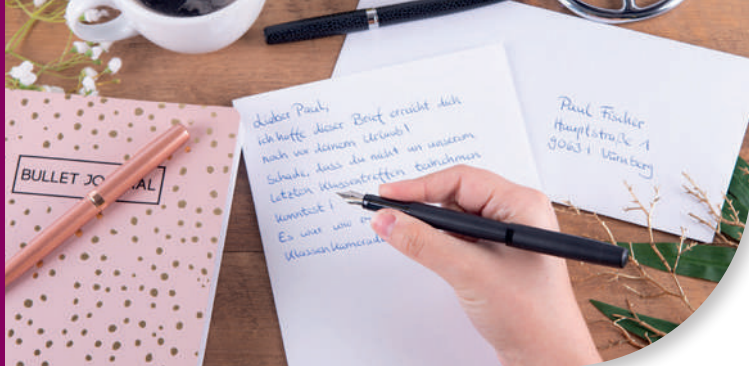 BULLET JO AL
Lieber Paul,
ich hoffe dieser Brief erreicht dich
noch vor deinem Urlaub!
Schade, dass du nicht an unserem
letzten Klassentreffen teilnehmen
konntest!
Es war
Klassenkamerad
Paul Fischer
Hauptstraße 1
90631 Nürnberg